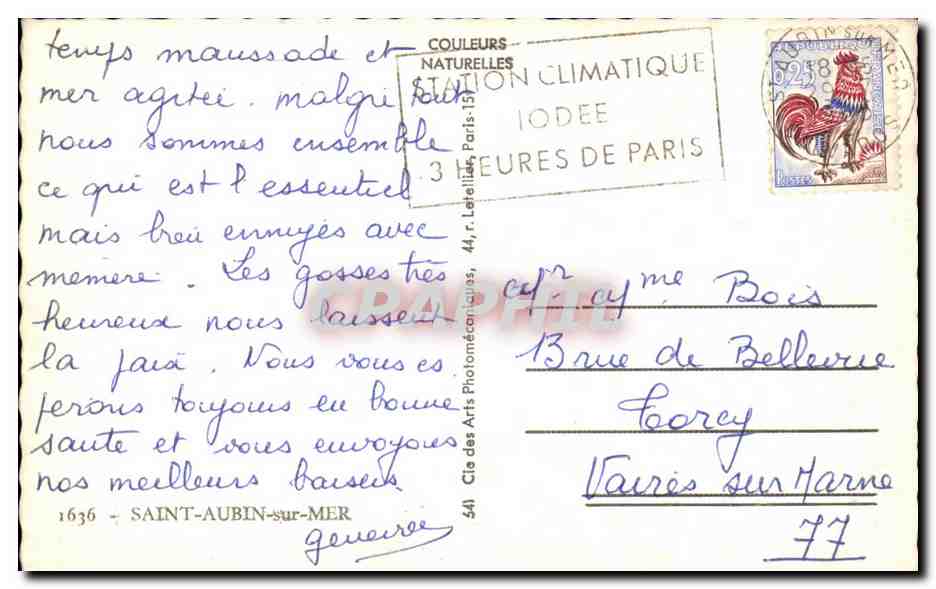 temps maussade et
mer agitée. malgré tout
nous sommes ensemble
ce qui est l essentiel
mais bien ennuyés avec
mémère. Les gosses très
heureux nous laissent
la paix. Nous vous es.
perons toujours en bonne
sante et vous envoyons
nos meilleurs baisers.
1636 - SAINT-AUBIN-sur-MER
geneviève
COULEURS
NATURELLES
541 Cie des Arts Photomécaniques, 44, r. Letellier, Paris-15
STATION CLIMATIQUE
IODEE
3 HEURES DE PARIS
ST AUBIN SUR MER
18
0,25
POSTES
Mr. Mme Bois
13 rue de Bellevue
Torcy
Vaires sur Marne
77
CPAPHIL